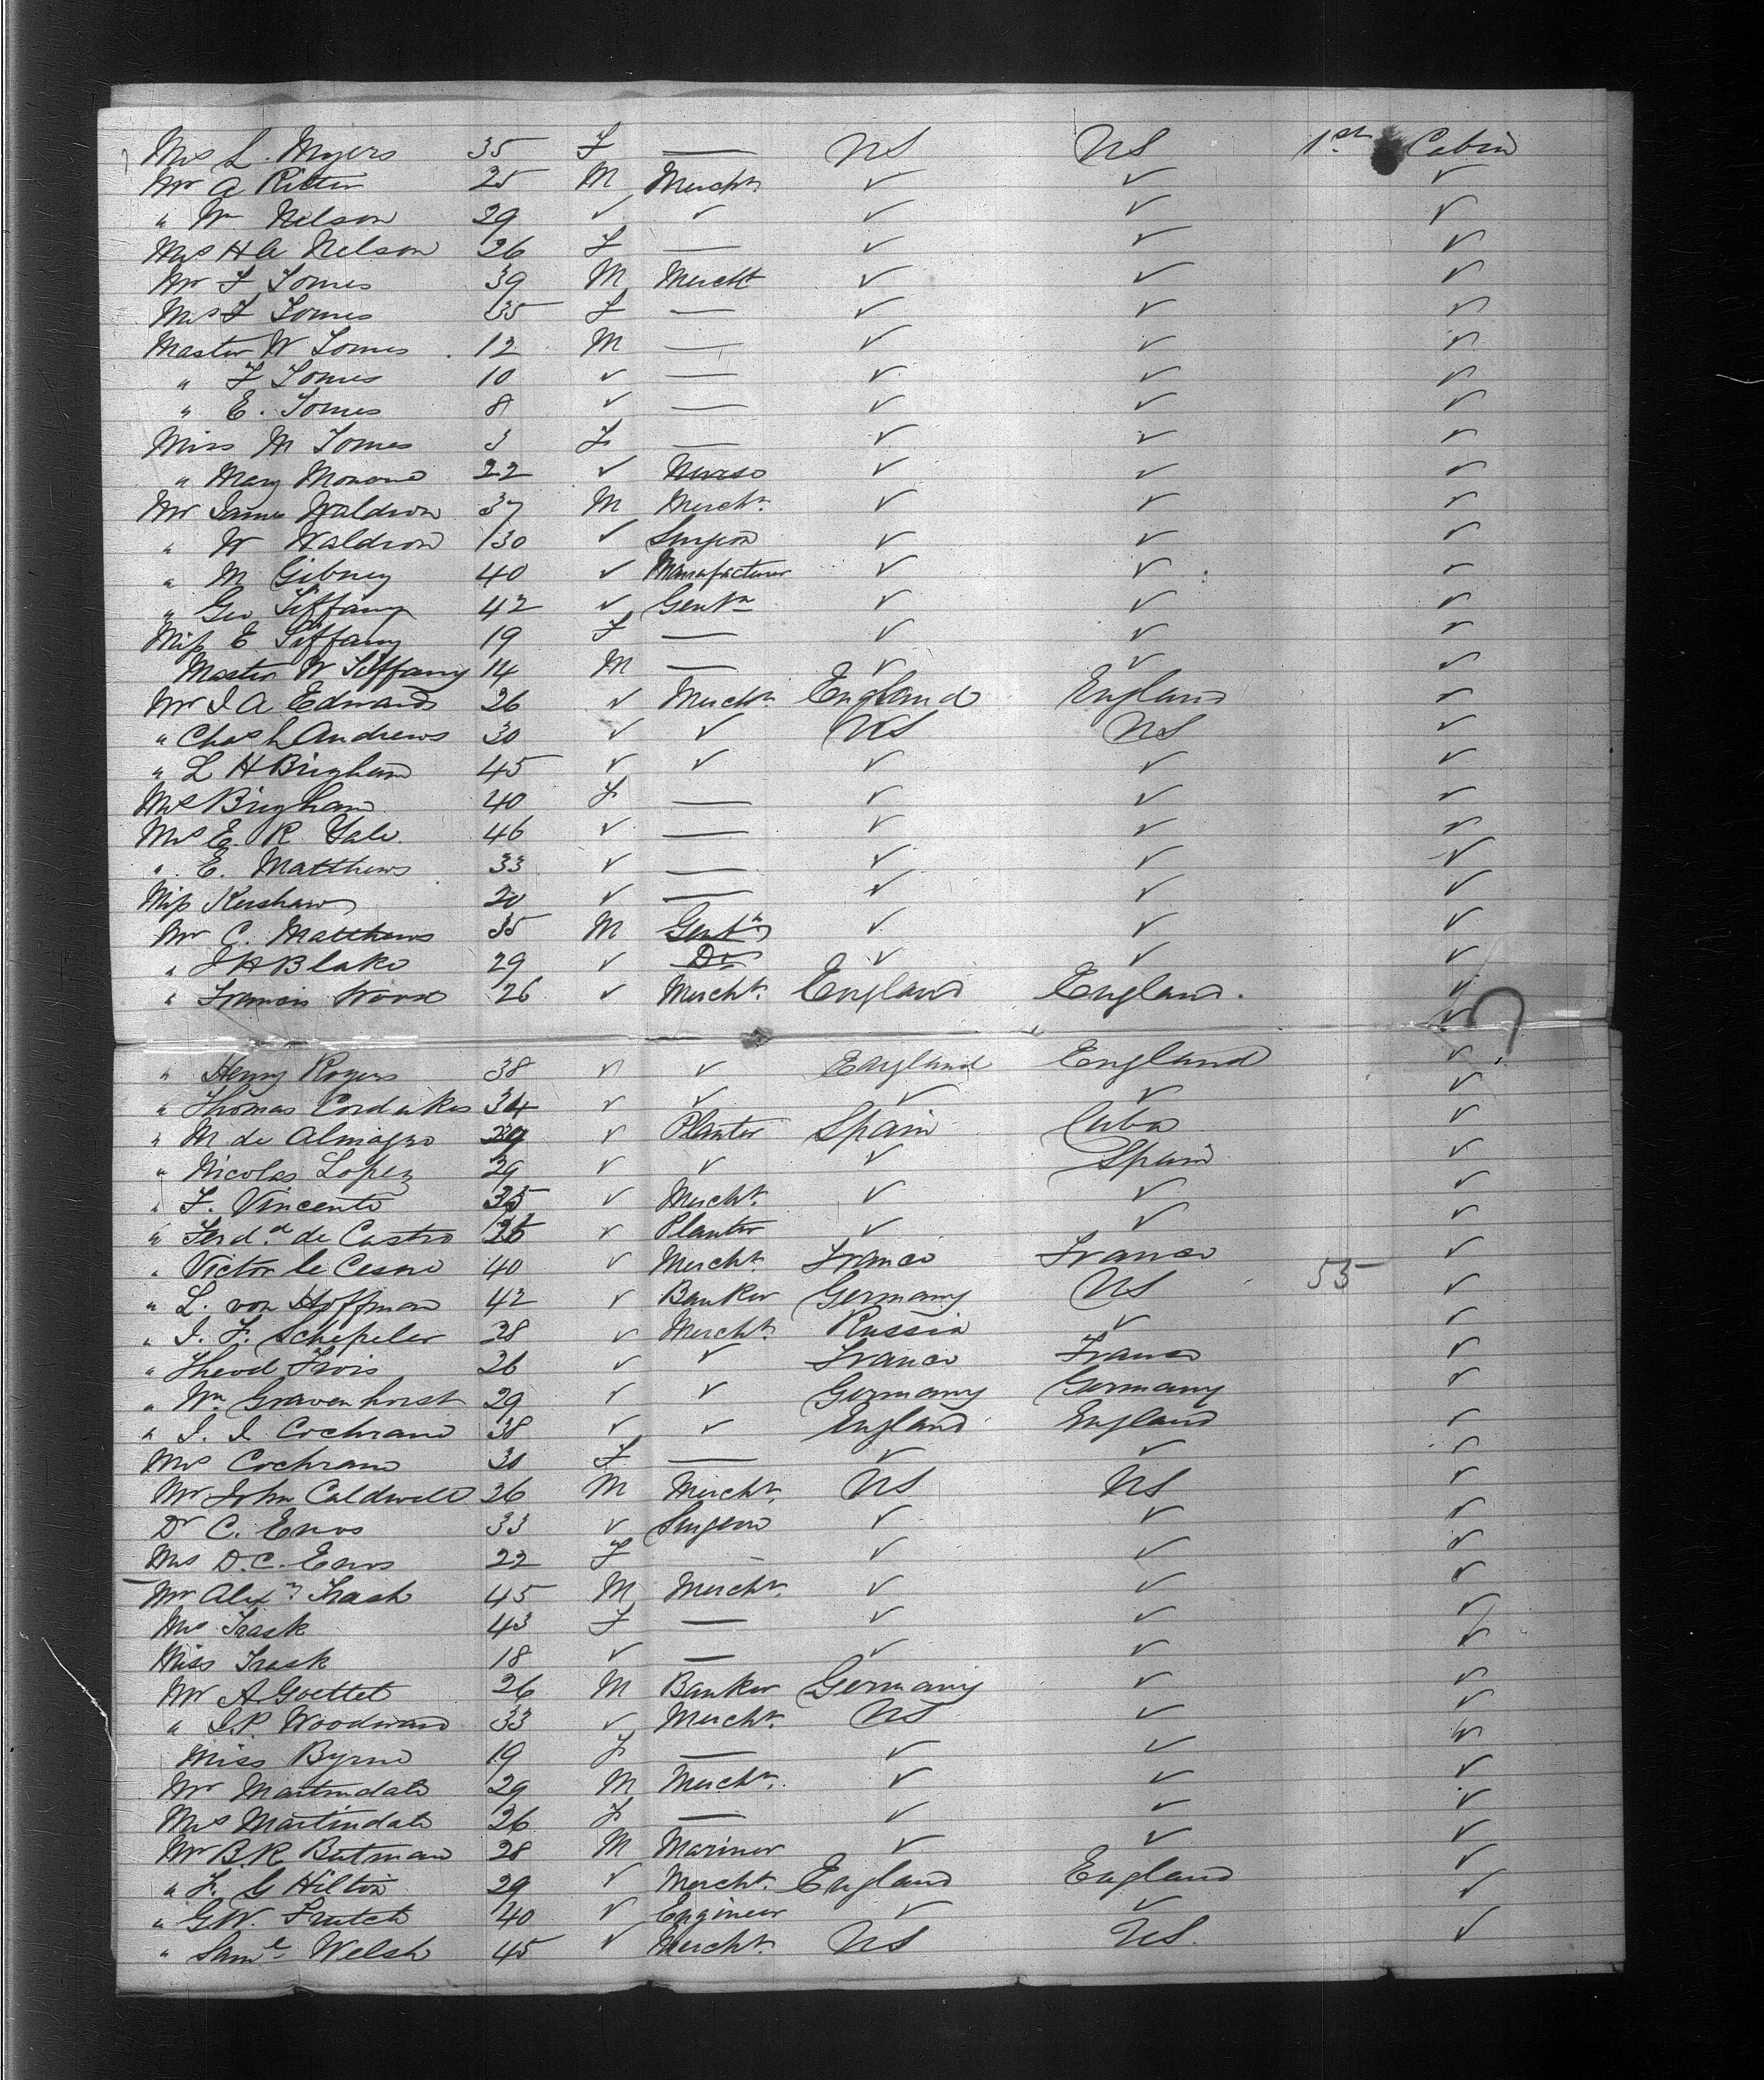 Mrs L. Myers 35 F — US US 1st Cabin
Mr A Ritter 25 M Mercht ✓ ✓ ✓
" Wm Nelson 29 ✓ ✓ ✓ ✓ ✓
Mrs H Nelson 26 F — ✓ ✓ ✓
Mr F Tomes 39 M Mercht ✓ ✓ ✓
Mrs F Tomes 35 F — ✓ ✓ ✓
Master W Tomes 12 M — ✓ ✓ ✓
" F Tomes 10 ✓ — ✓ ✓ ✓
" E. Tomes 8 ✓ — ✓ ✓ ✓
Miss M Tomes 3 F — ✓ ✓ ✓
" Mary 22 ✓ Nurse ✓ ✓ ✓
Mr James Waldron 37 M Mercht. ✓ ✓ ✓
" W Waldron 30 ✓ Surgeon ✓ ✓ ✓
" M Gibney 40 ✓ Manufacturer ✓ ✓ ✓
" Geo Tiffany 42 ✓ Gentn ✓ ✓ ✓
Miss E Tiffany 19 F — ✓ ✓ ✓
Master W Tiffany 14 M — ✓ ✓ ✓
Mr J A Edwards 26 ✓ Mercht England England ✓
" Chas L Andrews 30 ✓ ✓ US US ✓
" L H Brigham 45 ✓ ✓ ✓ ✓ ✓
Mrs Brigham 40 F — ✓ ✓ ✓
Mrs E. R. Yale. 46 ✓ — ✓ ✓ ✓
" E. Matthews 33 ✓ — ✓ ✓ ✓
Miss Kershaw 20 ✓ — ✓ ✓ ✓
Mr C. Matthews 35 M Gentn ✓ ✓ ✓
" J H Blake 29 ✓ Do ✓ ✓ ✓
" Francis 26 ✓ Mercht. England England. ✓
✓
" Henry Rogers 38 ✓ ✓ England England ✓
" Thomas Cordukes 34 ✓ ✓ ✓ ✓ ✓
" M de Almagro ✓ Planter Spain Cuba ✓
" Nicolas Lopez 29 ✓ ✓ ✓ Spain ✓
" F. Vincente 35 ✓ Mercht. ✓ ✓ ✓
" Ferd.d de Castro ✓ Planter ✓ ✓ ✓
" Victor le Cesne 40 ✓ Mercht. France France 55 ✓
" L. von Hoffman 42 ✓ Banker Germany US ✓
" J. F. Schepeler 28 ✓ Mercht. Russia ✓ ✓
" Theod 26 ✓ ✓ France France ✓
" Wm Gravenhorst 29 ✓ ✓ Germany Germany ✓
" J. J. Cochrane 38 ✓ ✓ England England ✓
Mrs Cochrane 30 F — ✓ ✓ ✓
Mr John Caldwell 26 M Mercht. US US ✓
Dr C. Enos 33 ✓ Surgeon ✓ ✓ ✓
Mrs D.C. Enos 22 F — ✓ ✓ ✓
Mr Alexr Trask 45 M Mercht. ✓ ✓ ✓
Mrs Trask 43 F — ✓ ✓ ✓
Miss Trask 18 ✓ — ✓ ✓ ✓
Mr A Goettel 26 M Banker Germany ✓ ✓
" J.P. Woodward 33 ✓ Mercht. US ✓ ✓
Miss Byrne 19 F — ✓ ✓ ✓
Mr Martindale 29 M Mercht. ✓ ✓ ✓
Mrs Martindale 26 F — ✓ ✓ ✓
Mr B.R. Butman 28 M Mariner ✓ ✓ ✓
" F. G Hilton 29 ✓ Mercht. England England ✓
" G.W. 40 ✓ Engineer ✓ ✓ ✓
" Saml. Welsh 45 ✓ Mercht. US US. ✓